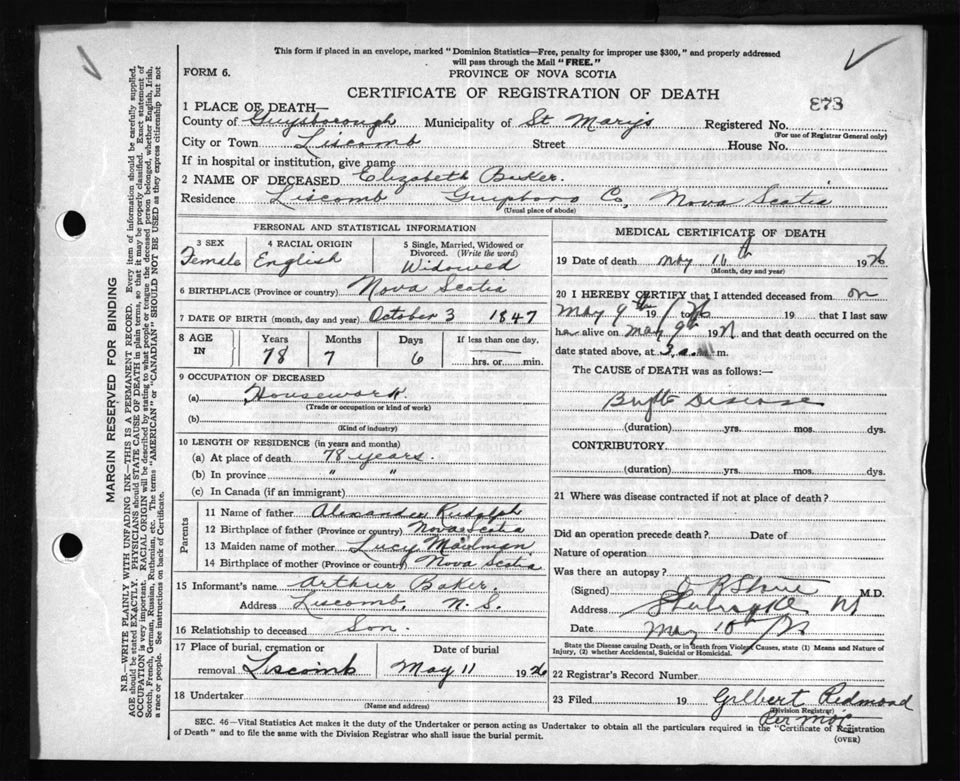 This form if placed in an envelope, marked "Dominion Statistics—Free, penalty for improper use $300," and properly addressed
will pass through the Mail "FREE."
FORM 6.
PROVINCE OF NOVA SCOTIA
CERTIFICATE OF REGISTRATION OF DEATH
873
1 PLACE OF DEATH—
County of Guysborough Municipality of St Mary's Registered No.
(For use of Registrar General only)
City or Town Liscomb Street House No.
If in hospital or institution, give name
2 NAME OF DECEASED Elizabeth Baker.
Residence Liscomb Guysboro Co, Nova Scotia
(Usual place of abode)
PERSONAL AND STATISTICAL INFORMATION
3 SEX 4 RACIAL ORIGIN 5 Single, Married, Widowed or
Divorced. (Write the word)
Female English Widowed
6 BIRTHPLACE (Province or country) Nova Scotia
7 DATE OF BIRTH (month, day and year) October 3 1847
8 AGE IN Years Months Days If less than one day,
78 7 6 hrs. or min.
9 OCCUPATION OF DECEASED
(a) Housework
(Trade or occupation or kind of work)
(b)
(Kind of industry)
10 LENGTH OF RESIDENCE (in years and months)
(a) At place of death 78 years.
(b) In province " "
(c) In Canada (if an immigrant)
Parents
11 Name of father Alexander Rudolph
12 Birthplace of father (Province or country) Nova Scotia
13 Maiden name of mother Lucy
14 Birthplace of mother (Province or country) Nova Scotia
15 Informant's name Arthur Baker.
Address Liscomb, N.S.
16 Relationship to deceased Son.
17 Place of burial, cremation or Date of burial
removal Liscomb May 11 1926
18 Undertaker
(Name and address)
MEDICAL CERTIFICATE OF DEATH
19 Date of death May 10th 1926
(Month, day and year)
20 I HEREBY CERTIFY that I attended deceased from on
May 9th 19 to 19 that I last saw
h alive on May 9th 19 and that death occurred on the
date stated above, at 3 a. m.
The CAUSE of DEATH was as follows:—
Brights Disease
(duration) yrs. mos. dys.
CONTRIBUTORY
(duration) yrs. mos. dys.
21 Where was disease contracted if not at place of death?
Did an operation precede death? Date of
Nature of operation
Was there an autopsy?
(Signed) M.D.
Address
Date May 10th
State the Disease causing Death, or in death from Violent Causes, state (1) Means and Nature of
Injury, (2) whether Accidental, Suicidal or Homicidal.
22 Registrar's Record Number
23 Filed 19 Gilbert Redmond
(Division Registrar)
Per
SEC. 46—Vital Statistics Act makes it the duty of the Undertaker or person acting as Undertaker to obtain all the particulars required in the "Certificate of Registration
of Death" and to file the same with the Division Registrar who shall issue the burial permit.
(OVER)
MARGIN RESERVED FOR BINDING
N.B.—WRITE PLAINLY WITH UNFADING INK—THIS IS A PERMANENT RECORD. Every item of information should be carefully supplied.
AGE should be stated EXACTLY. PHYSICIANS should STATE CAUSE OF DEATH in plain terms, so that it may be properly classified. Exact statement of
OCCUPATION is very important. RACIAL ORIGIN will be described by stating to what people or tongue the deceased person belonged, whether English, Irish,
Scotch, French, German, Russian, Ruthenian, etc. The terms "AMERICAN" or "CANADIAN" SHOULD NOT BE USED as they express citizenship but not
a race or people. See instructions on back of Certificate.